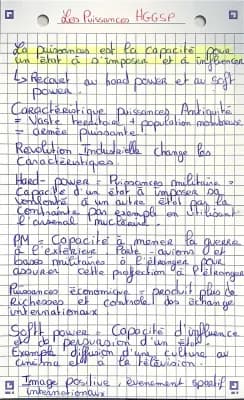 Les Puissances HGGSP
La puissances est la capacité pour
un état à s'imposer et à influencer
↳ Recourt au hard power et au soft
power.
Caractéristique puissances Antiquité
= Vaste territoire + population nombreuse
= armée puissante.
Revolution Industrielle change les
caractéristiques.
Hard-power = Puissances militaire =
Capacité d'un état à imposer sa
volonté à un autre état par la
contrainte par exemple en utilisant
l'arsenal nucléaire.
PM = Capacité à mener la guerre
à l'extérieur Porte-avions et
bases militaires à l'étranger pour
assurer cette projection à l'étranger
Puissances économique = produit plus de
richesses et contrôle des échange
internationaux
Soft power = Capacité d'influence
et de persuasion d'un état.
Exemple diffusion d'une culture au
cinéma et à la télévision.
Image positive, evenement sportif
internationaux